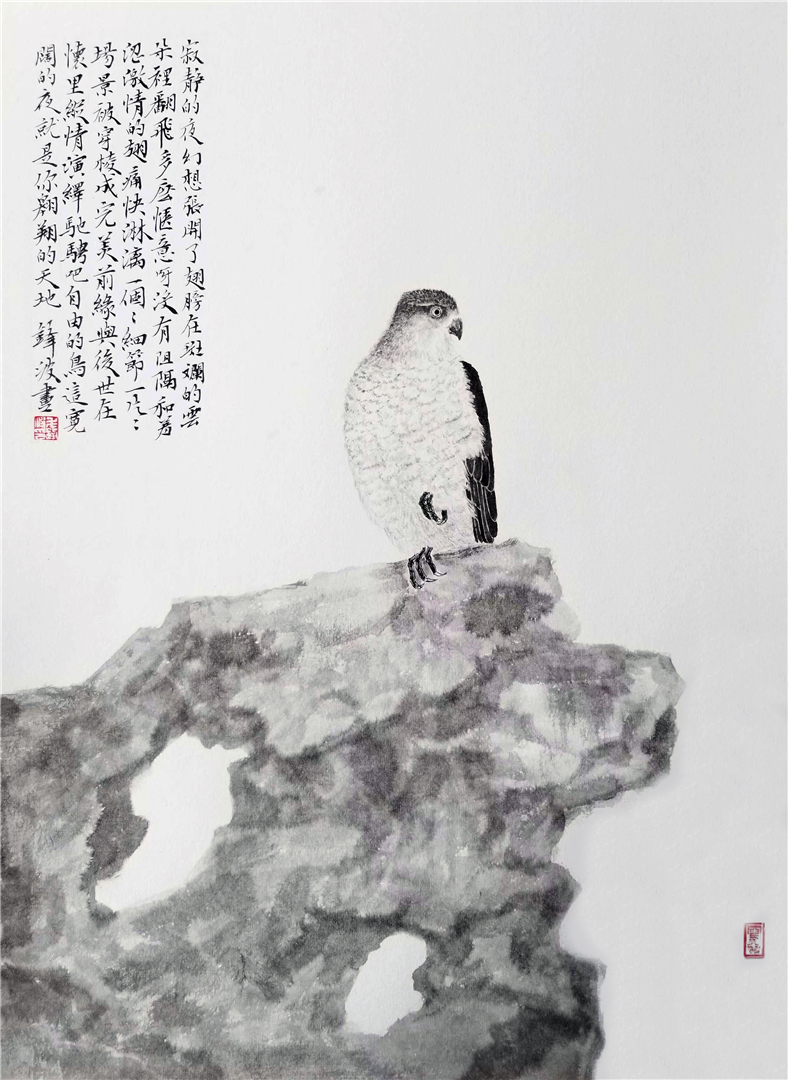 寂靜的夜幻想張開了翅膀在斑斕的雲
朵裡翻飛多麼愜意呀沒有阻隔和着
激情的翅痛快淋漓一個〻細節一〻
場景被穿梭成完美前緣與後世在
懷里縱情演繹馳騁吧自由的鳥這寬
闊的夜就是你翱翔的天地 鋒波畫